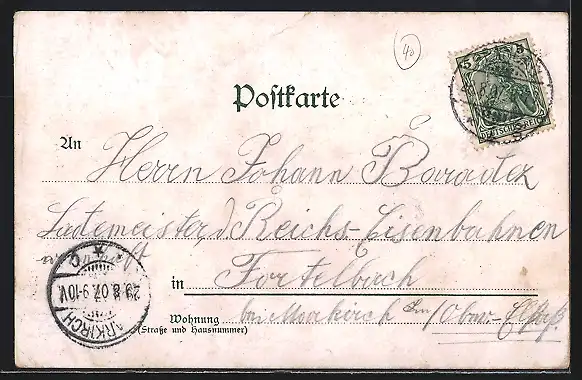 40
Postkarte
5 5
DEUTSCHES REICH
An Herrn Johann Baradek
Lademeister, d. Reichs-Eisenbahnen
in Fortelbach
bei Markirch im/Ober-Elsaß
Wohnung
(Straße und Hausnummer)
MARKIRCH
29.8.07.9-10V.
* C